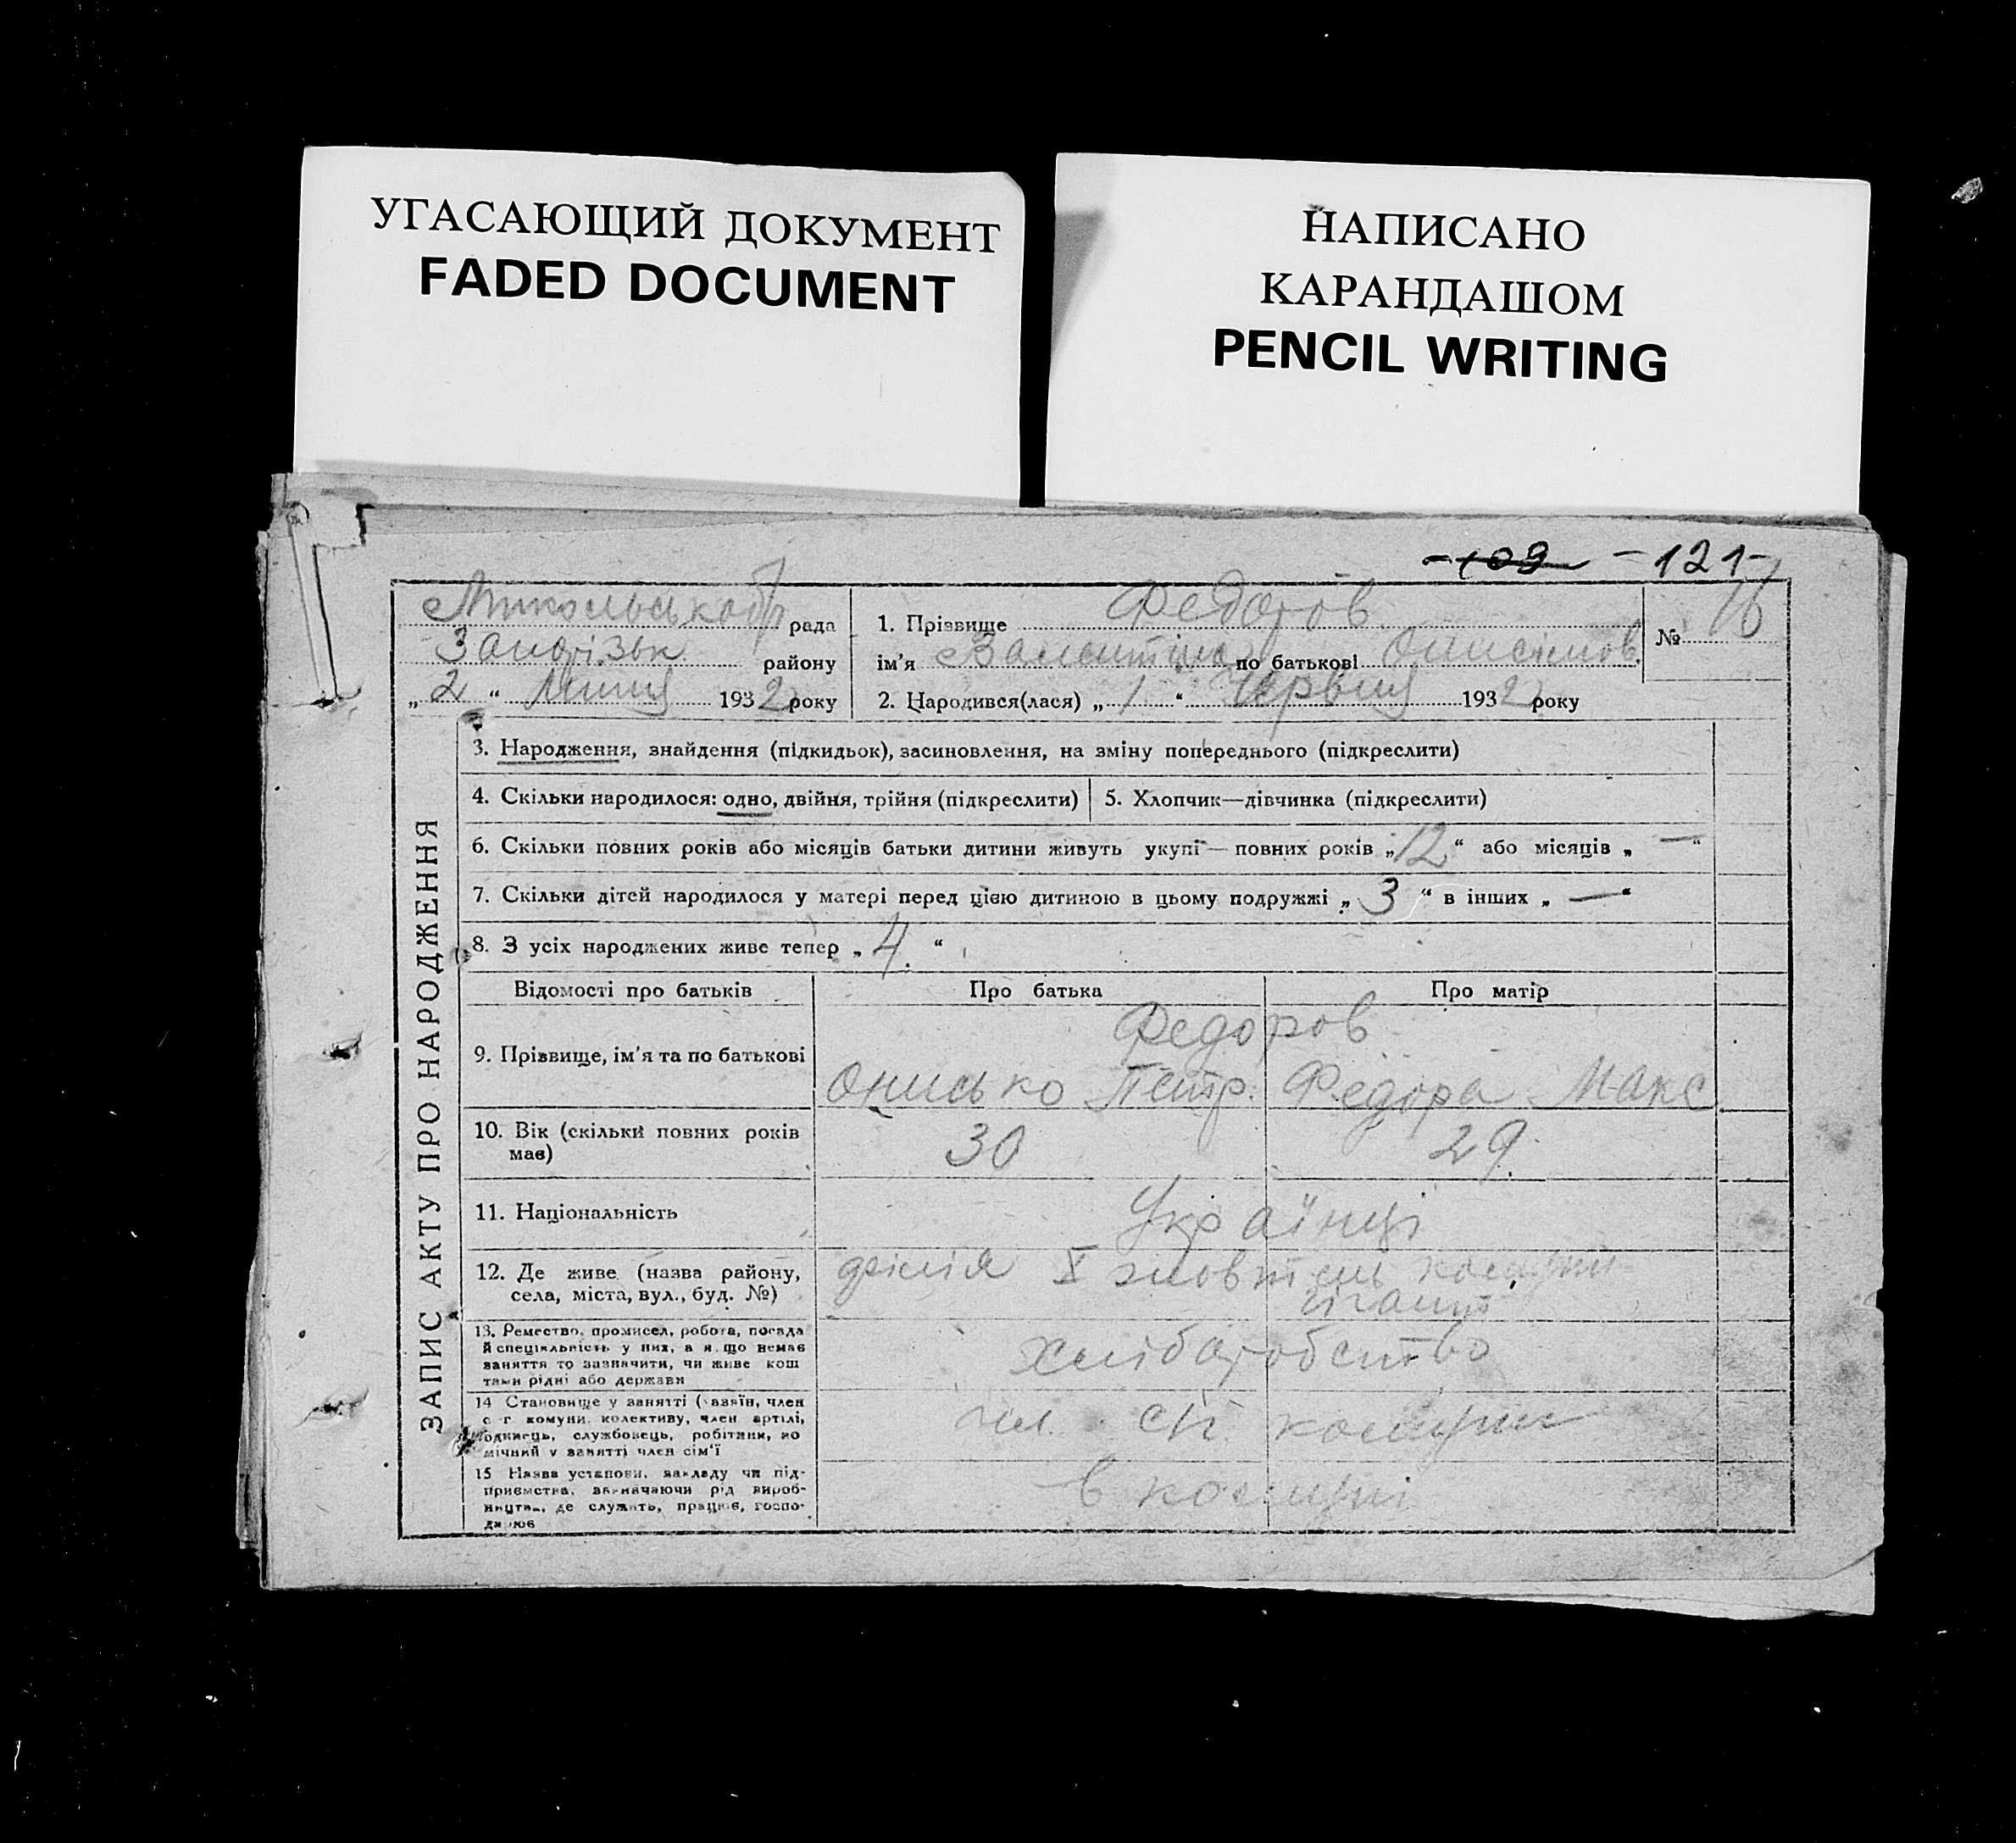 УГАСАЮЩИЙ ДОКУМЕНТ
FADED DOCUMENT
НАПИСАНО
КАРАНДАШОМ
PENCIL WRITING
109 - 121 -
рада
району
„ 2 “ Липця 1932 року
1. Прізвище Федоров
ім'я Валентіна по батькові Онисімов.
2. Народився(лася) „ 1 “ Червця 1932 року
№ 16
ЗАПИС АКТУ ПРО НАРОДЖЕННЯ
3. Народження, знайдення (підкидьок), засиновлення, на зміну попереднього (підкреслити)
4. Скільки народилося: одно, двійня, трійня (підкреслити)
5. Хлопчик—дівчинка (підкреслити)
6. Скільки повних років або місяців батьки дитини живуть укупі — повних років „ 12 “ або місяців „ — “
7. Скільки дітей народилося у матері перед цією дитиною в цьому подружжі „ 3 “ в інших „ — “
8. З усіх народжених живе тепер „ 4. “
Відомості про батьків Про батька Про матір
9. Прізвище, ім'я та по батькові
Федоров
Онисько Петр. Федора Макс
10. Вік (скільки повних років
має)
30 29.
11. Національність Українці
12. Де живе (назва району,
села, міста, вул., буд. №)
X жовтень комуни
гігант
13. Ремество, промисел, робота, посада
й спеціяльність у них, а якщо немає
заняття то зазначити, чи живе кош
тами рідні або держави
Хліборобство
14 Становище у занятті (хазяїн, член
с г комуни, колективу, член артілі,
одинець, службовець, робітник, по
мічний у занятті член сім'ї
чл. комуни
15 Назва установи, закладу чи під-
приємства, зазначаючи рід вироб-
ництва, де служить, працює, госпо-
дарює
в комуні